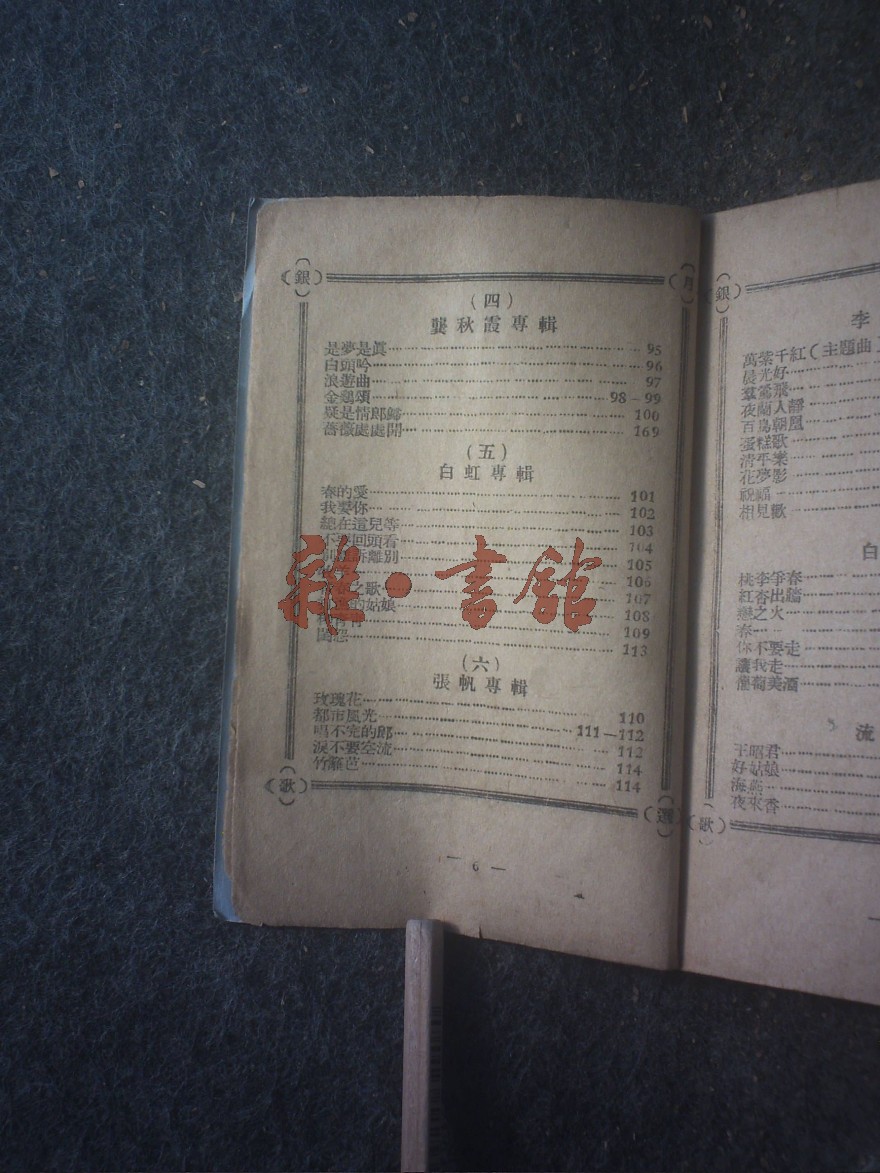 銀 月
(四)
龔秋霞專輯
是夢是眞 95
白頭吟 96
浪遊曲 97
金鵝頌 98-99
疑是情郎歸 100
薔薇處處開 169
(五)
白虹專輯
春的愛 101
我要你 102
總在這兒等 103
回頭看 104
訴離別 105
106
之歌 107
的姑娘 108
109
閨怨 113
(六)
張帆專輯
玫瑰花 110
都市風光 111—112
唱不完的郎 112
淚不要空流 114
竹籬笆 114
歌 選
— 6 —
雜·書館
銀
李
萬紫千紅(主題曲)
晨光好
羣鶯飛
夜闌人靜
百鳥朝凰
蛋糕歌
清平樂
花夢影
祝福
相見歡
白
桃李爭春
紅杏出牆
戀之火
春
你不要走
讓我走
葡萄美酒
流
王昭君
好姑娘
海燕
夜來香
歌